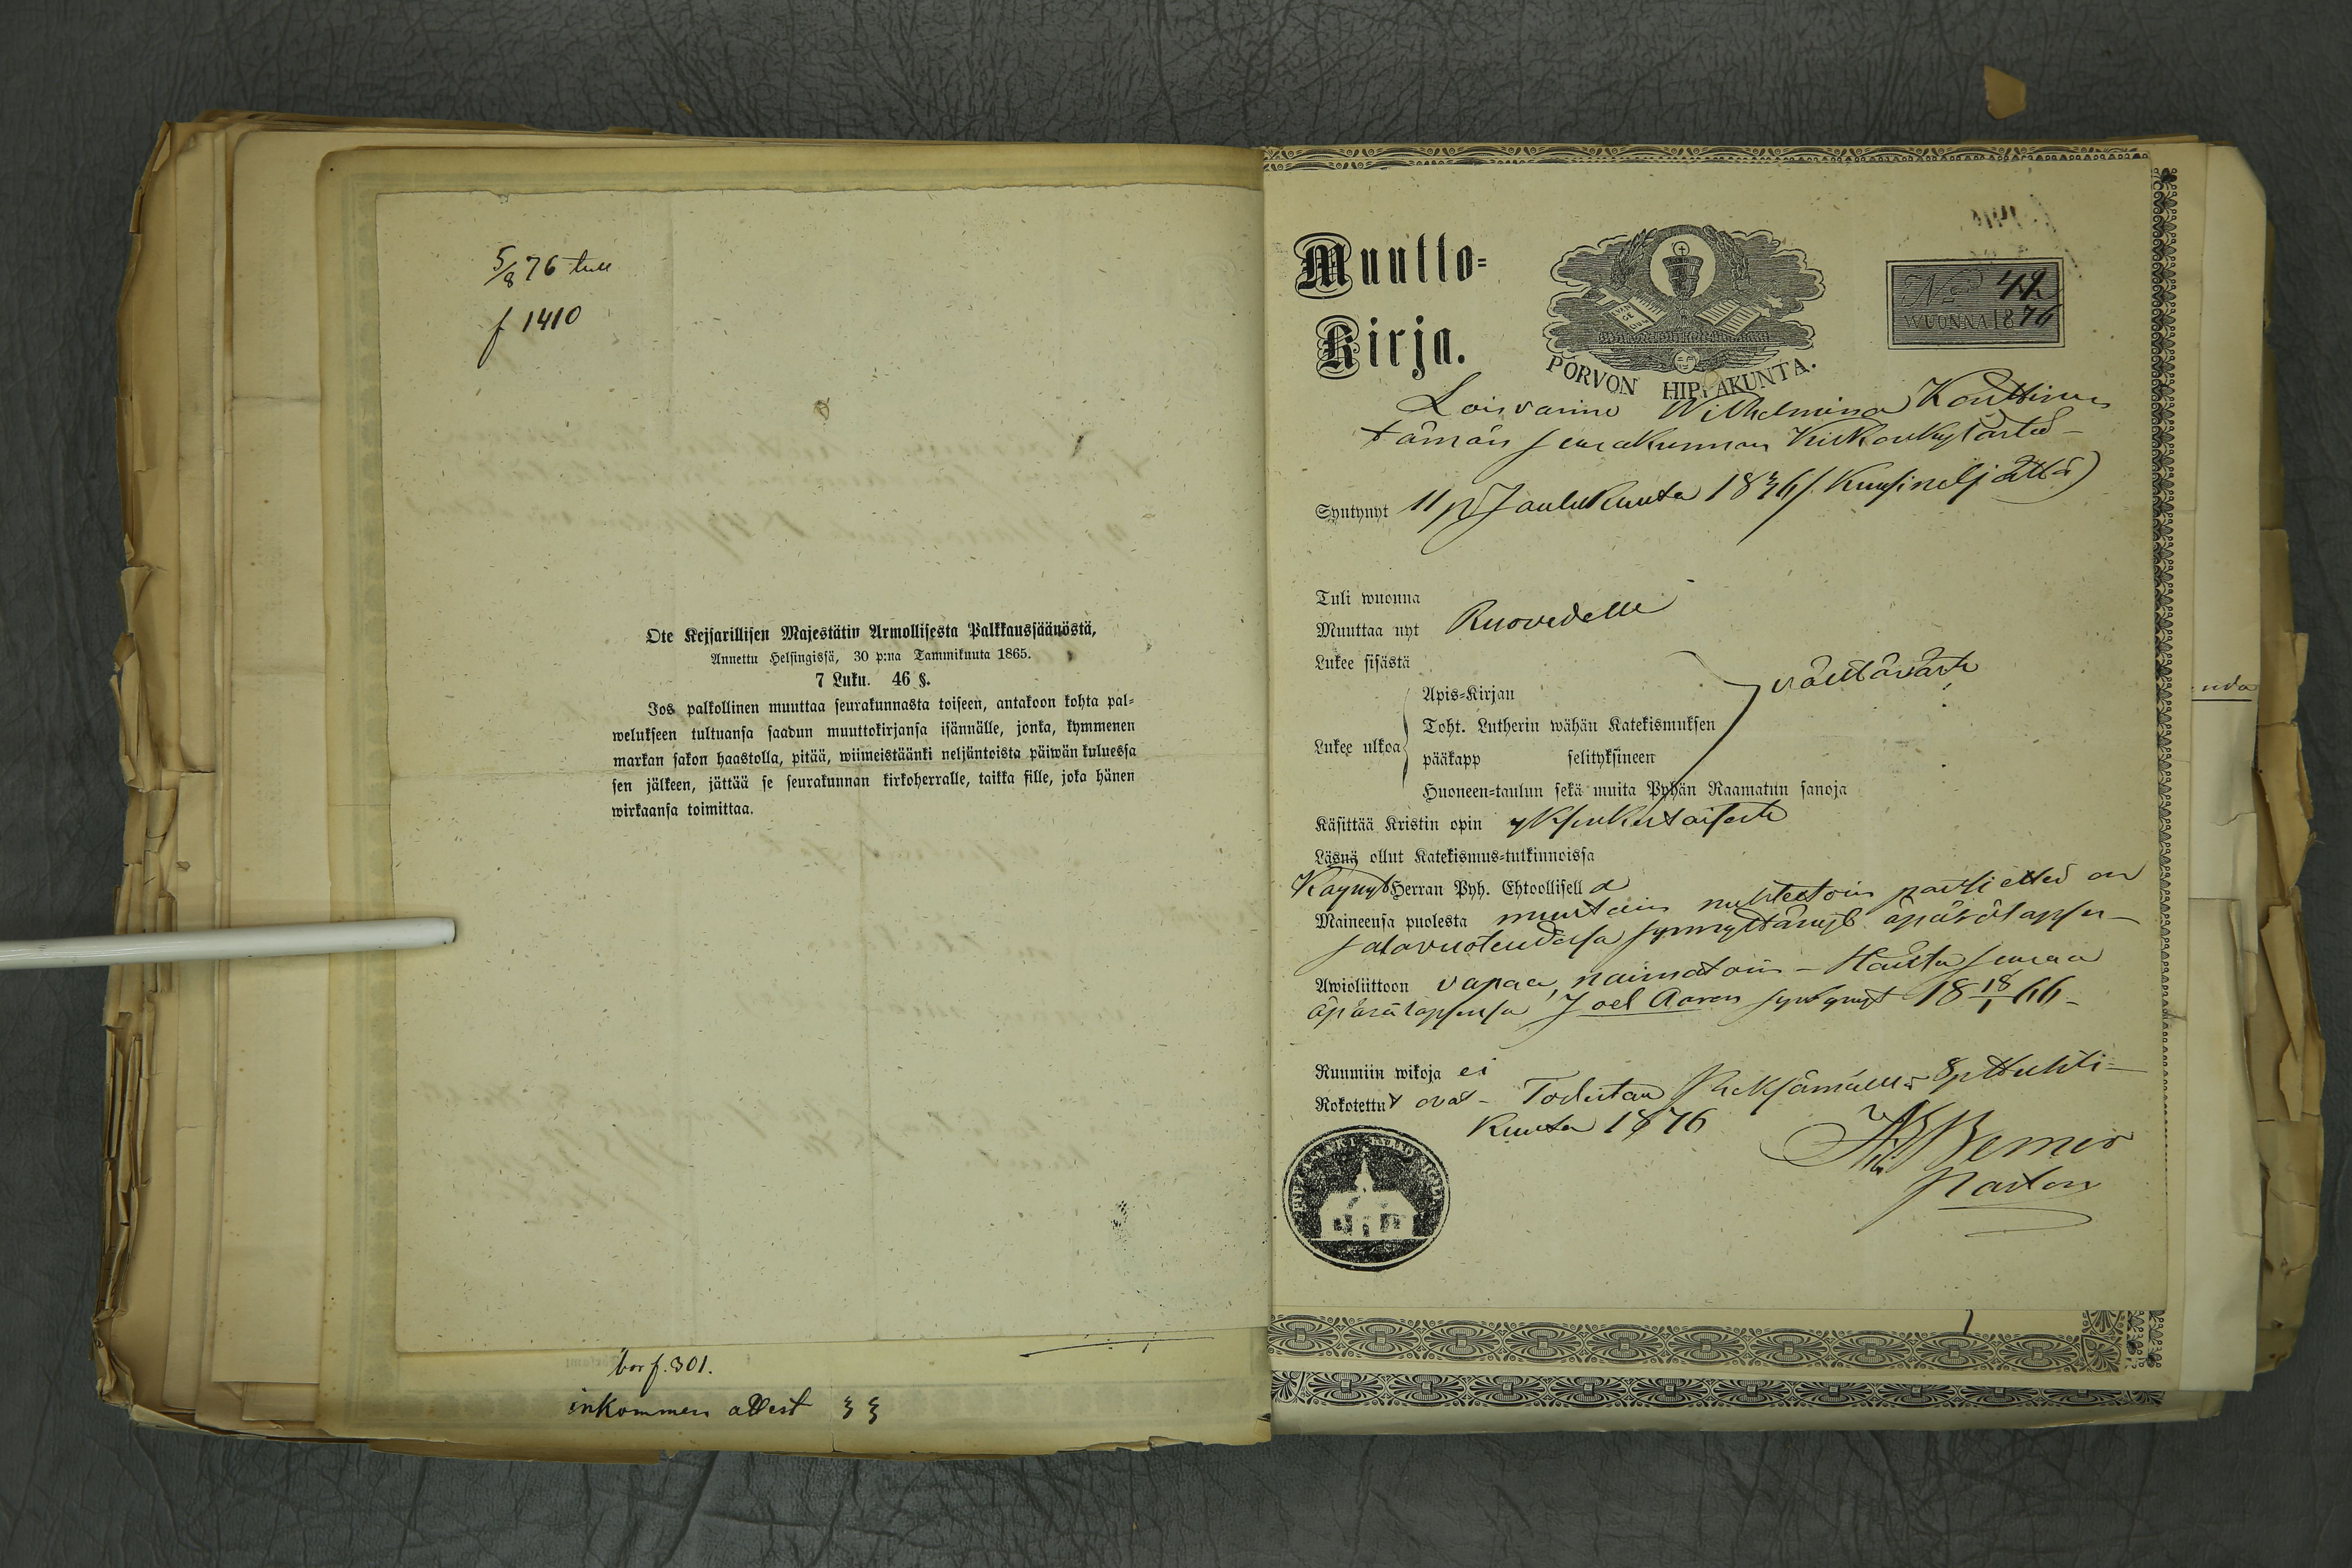 5/8 76 tull
f 1410
Ote Keisarillisen Majestätin Armollisesta Palkkaussäänöstä,
Annettu Helsingissä, 30 p:na Tammikuuta 1865.
7 Luku. 46 §.
Jos palkollinen muuttaa seurakunnasta toiseen, antakoon kohta pal-
welukseen tultuansa saadun muuttokirjansa isännälle, jonka, kymmenen
markan sakon haastolla, pitää, wiimeistäänki neljäntoista päiwän kuluessa
sen jälkeen, jättää se seurakunnan kirkoherralle, taikka sille, joka hänen
wirkaansa toimittaa.
bor f. 301.
inkommen attest
Muutto-
Kirja.
PORVON HIPPAKUNTA.
No 44
WUONNA 1876
Loisvaimo Wilhelmina Kouttinen
tämän seurakunnan Kirkonkylästä
Syntynyt 11 p Joulukuuta 1836/: Kuusineljättä)
Tuli wuonna
Muuttaa nyt Ruovedelle
Lukee sisästä
Lukee ulkoa
Apis-Kirjan
Toht. Lutherin wähän Katekismuksen
pääkapp selityksineen
Huoneen-taulun sekä muita Pyhän Raamatun sanoja
välttävästi
Käsittää Kristin opin yksinkertaisesti
Läsnä ollut Katekismus-tutkinnoissa
Käynyt Herran Pyh. Ehtoollisella
Maineensa puolesta muutoin nuhteetoin paitsi että on
salavuoteudessa synnyttänyt äpärälapsen
Awioliittoon vapaa, naimatoin - Häntä seuraa
äpärälapsensa Joel Aaron syntynyt 18 18/1 66 -
Ruumiin wikoja ei
Rokotettut ovat - Todistan Pieksämällä 8 p Huhti-
kuuta 1876
Pastori